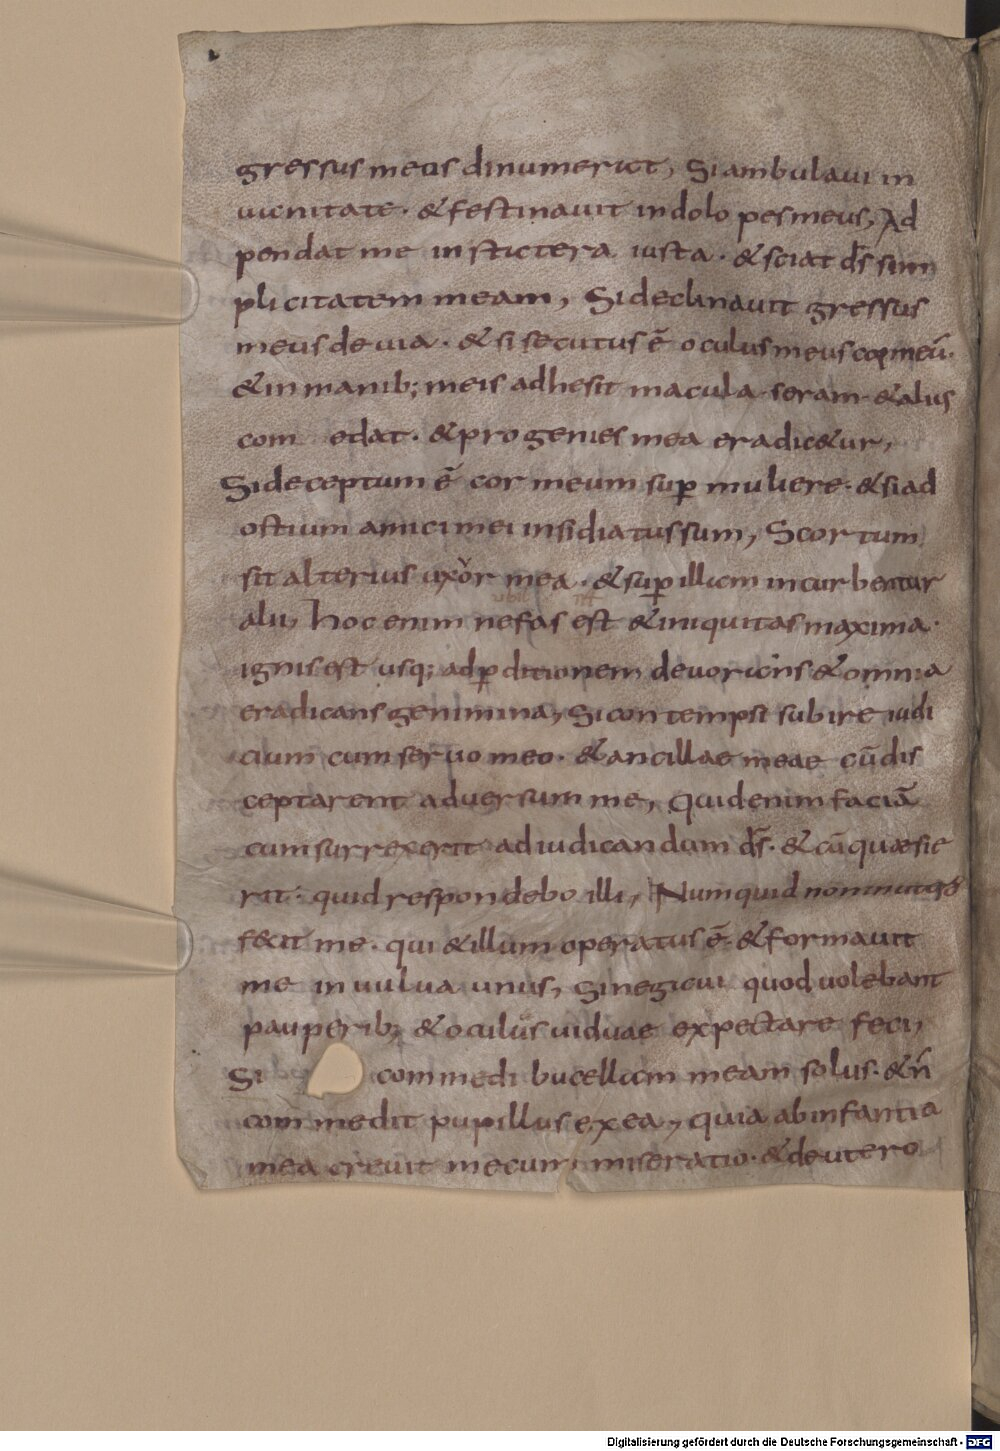 gressus meos dinumerat, Si ambulaui in
uanitate · & festinauit in dolo pes meus, Ad
pendat me in statera iusta · & sciat d̅s sim
plicitatem meam, Si declinauit gressus
meus de uia · & si secutus ē oculus meus cor meū ·
& in manib; meis adhesit macula seram & alius
com edat · & progenies mea eradic&ur,
Si deceptum ē cor meum sup̱ muliere · & si ad
ostium amici mei insidiatus sum, Scortum
sit alterius uxor mea · & sup̱ illam incurbentur
alii, hoc enim nefas est & iniquitas maxima ·
ignis est usq; ad p̱ditionem deuorans & omnia
eradicans genimina, Si contempsi subire iudi
cium cum seruo meo · & ancillae meae cū dis
ceptarent aduersum me, Quid enim faciā
cum surrexerit ad iudicandum d̅s · & cū quaesie
rit · quid respondebo illi, Numquid non in utero
fecit me · qui & illum operatus ē · & formauit
me in uulua unus, Si negaui quod uolebant
pauperib; & oculus uiduae expectare feci,
Si commedi bucellam meam solus · & n̄
commedit pupillus ex ea, quia ab infantia
mea creuit mecum miseratio · & de utero
Digitalisierung gefördert durch die Deutsche Forschungsgemeinschaft - DFG